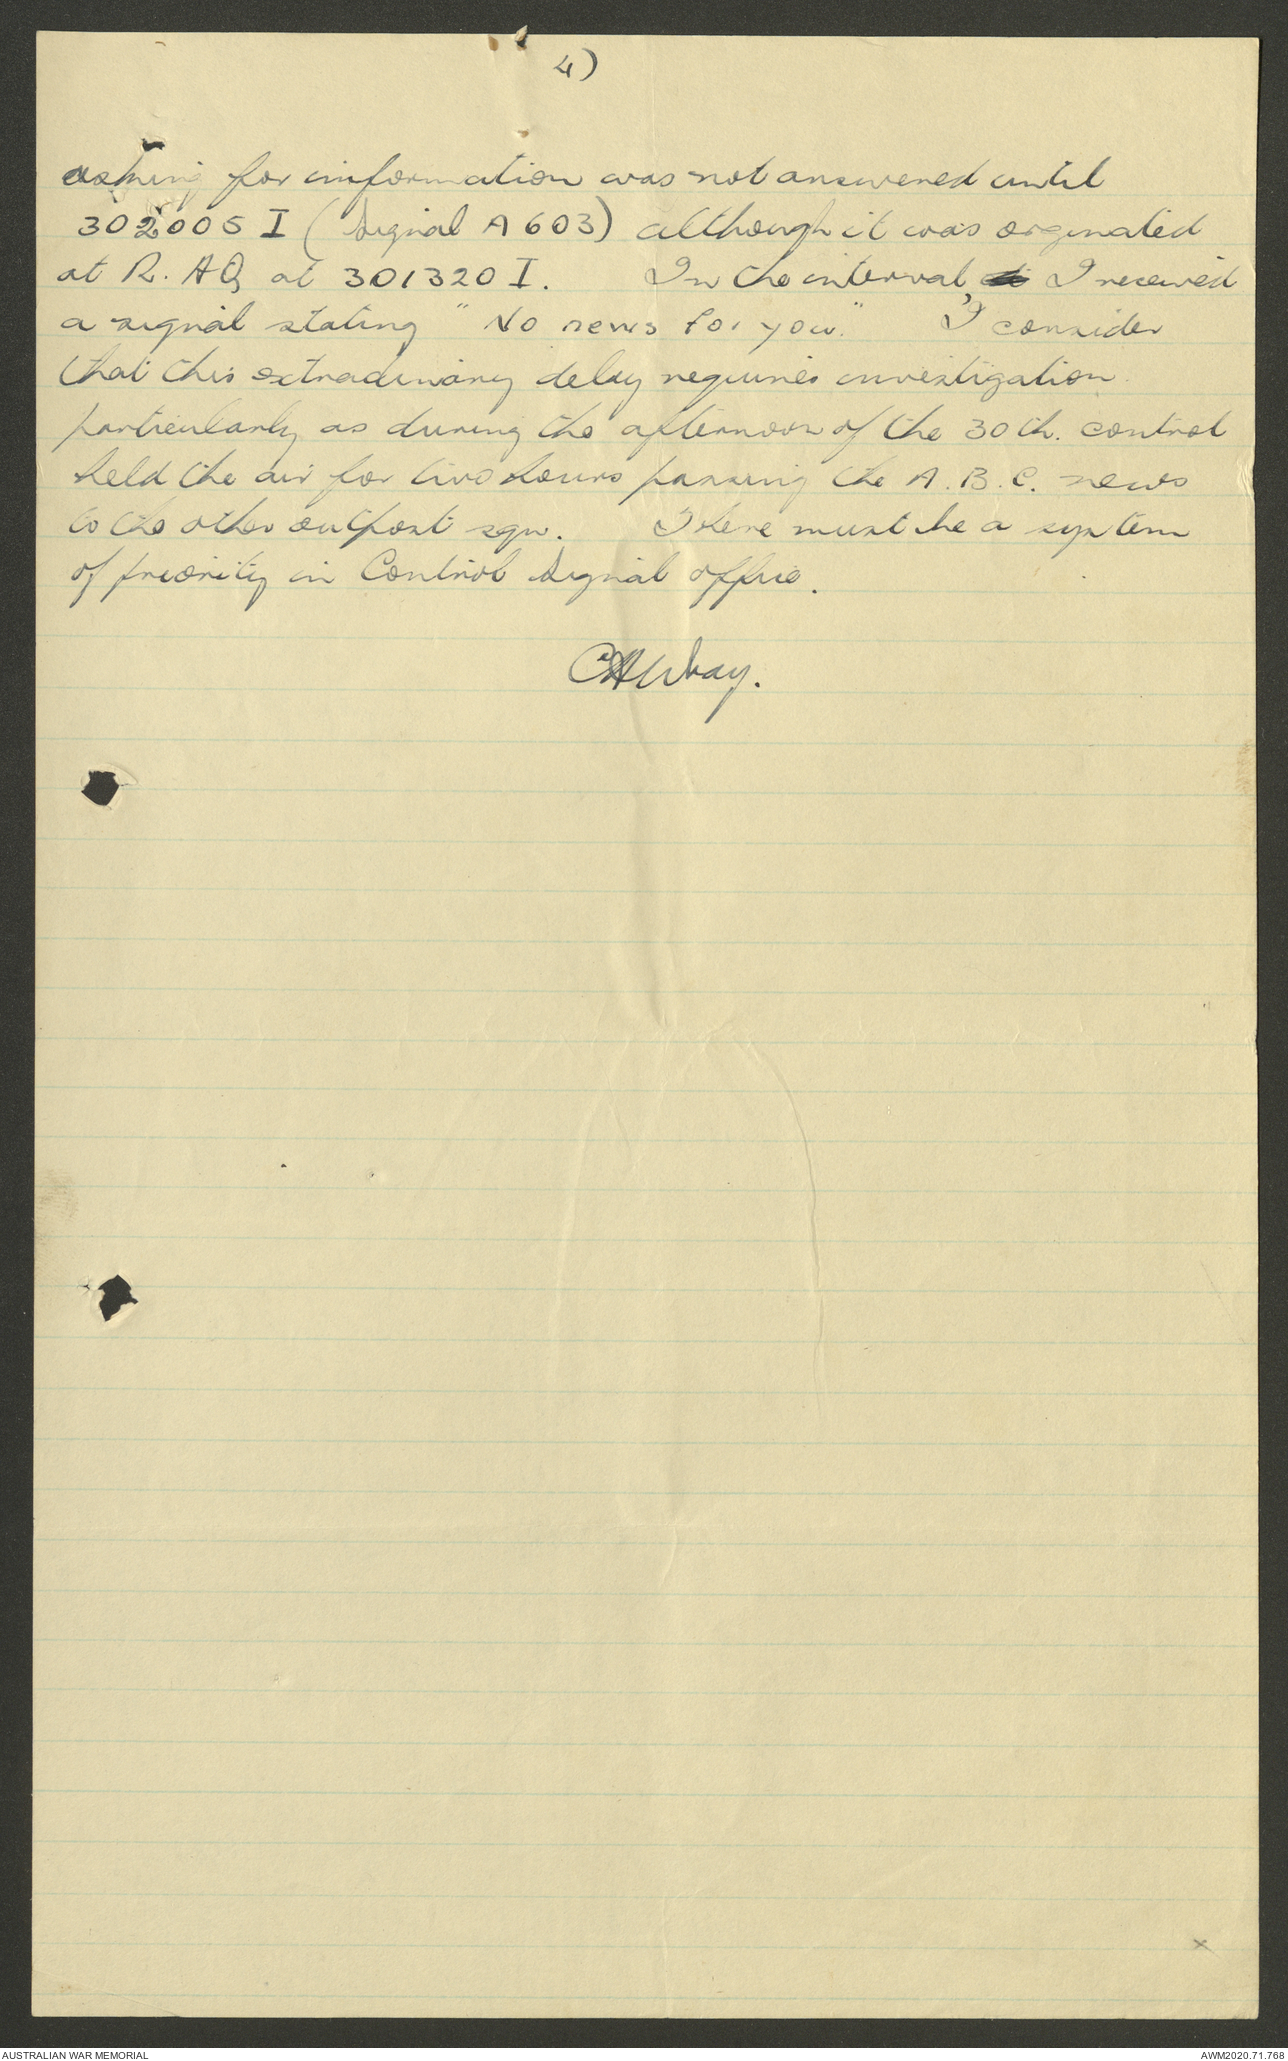 4)
asking for information was not answered until
302005 I (Signal A 603) although it was orginated
at R. HQ at 301320 I. In the interval I received
a signal stating "No news for you." I consider
that this extradinary delay requires investigation
particularly as during the afternoon of the 30th. control
held the air for two hours passing the A.B.C. news
to the other outpost sqn. There must be a system
of priority in Control Signal office.
CAWray.
x
AUSTRALIAN WAR MEMORIAL
AWM2020.71.768